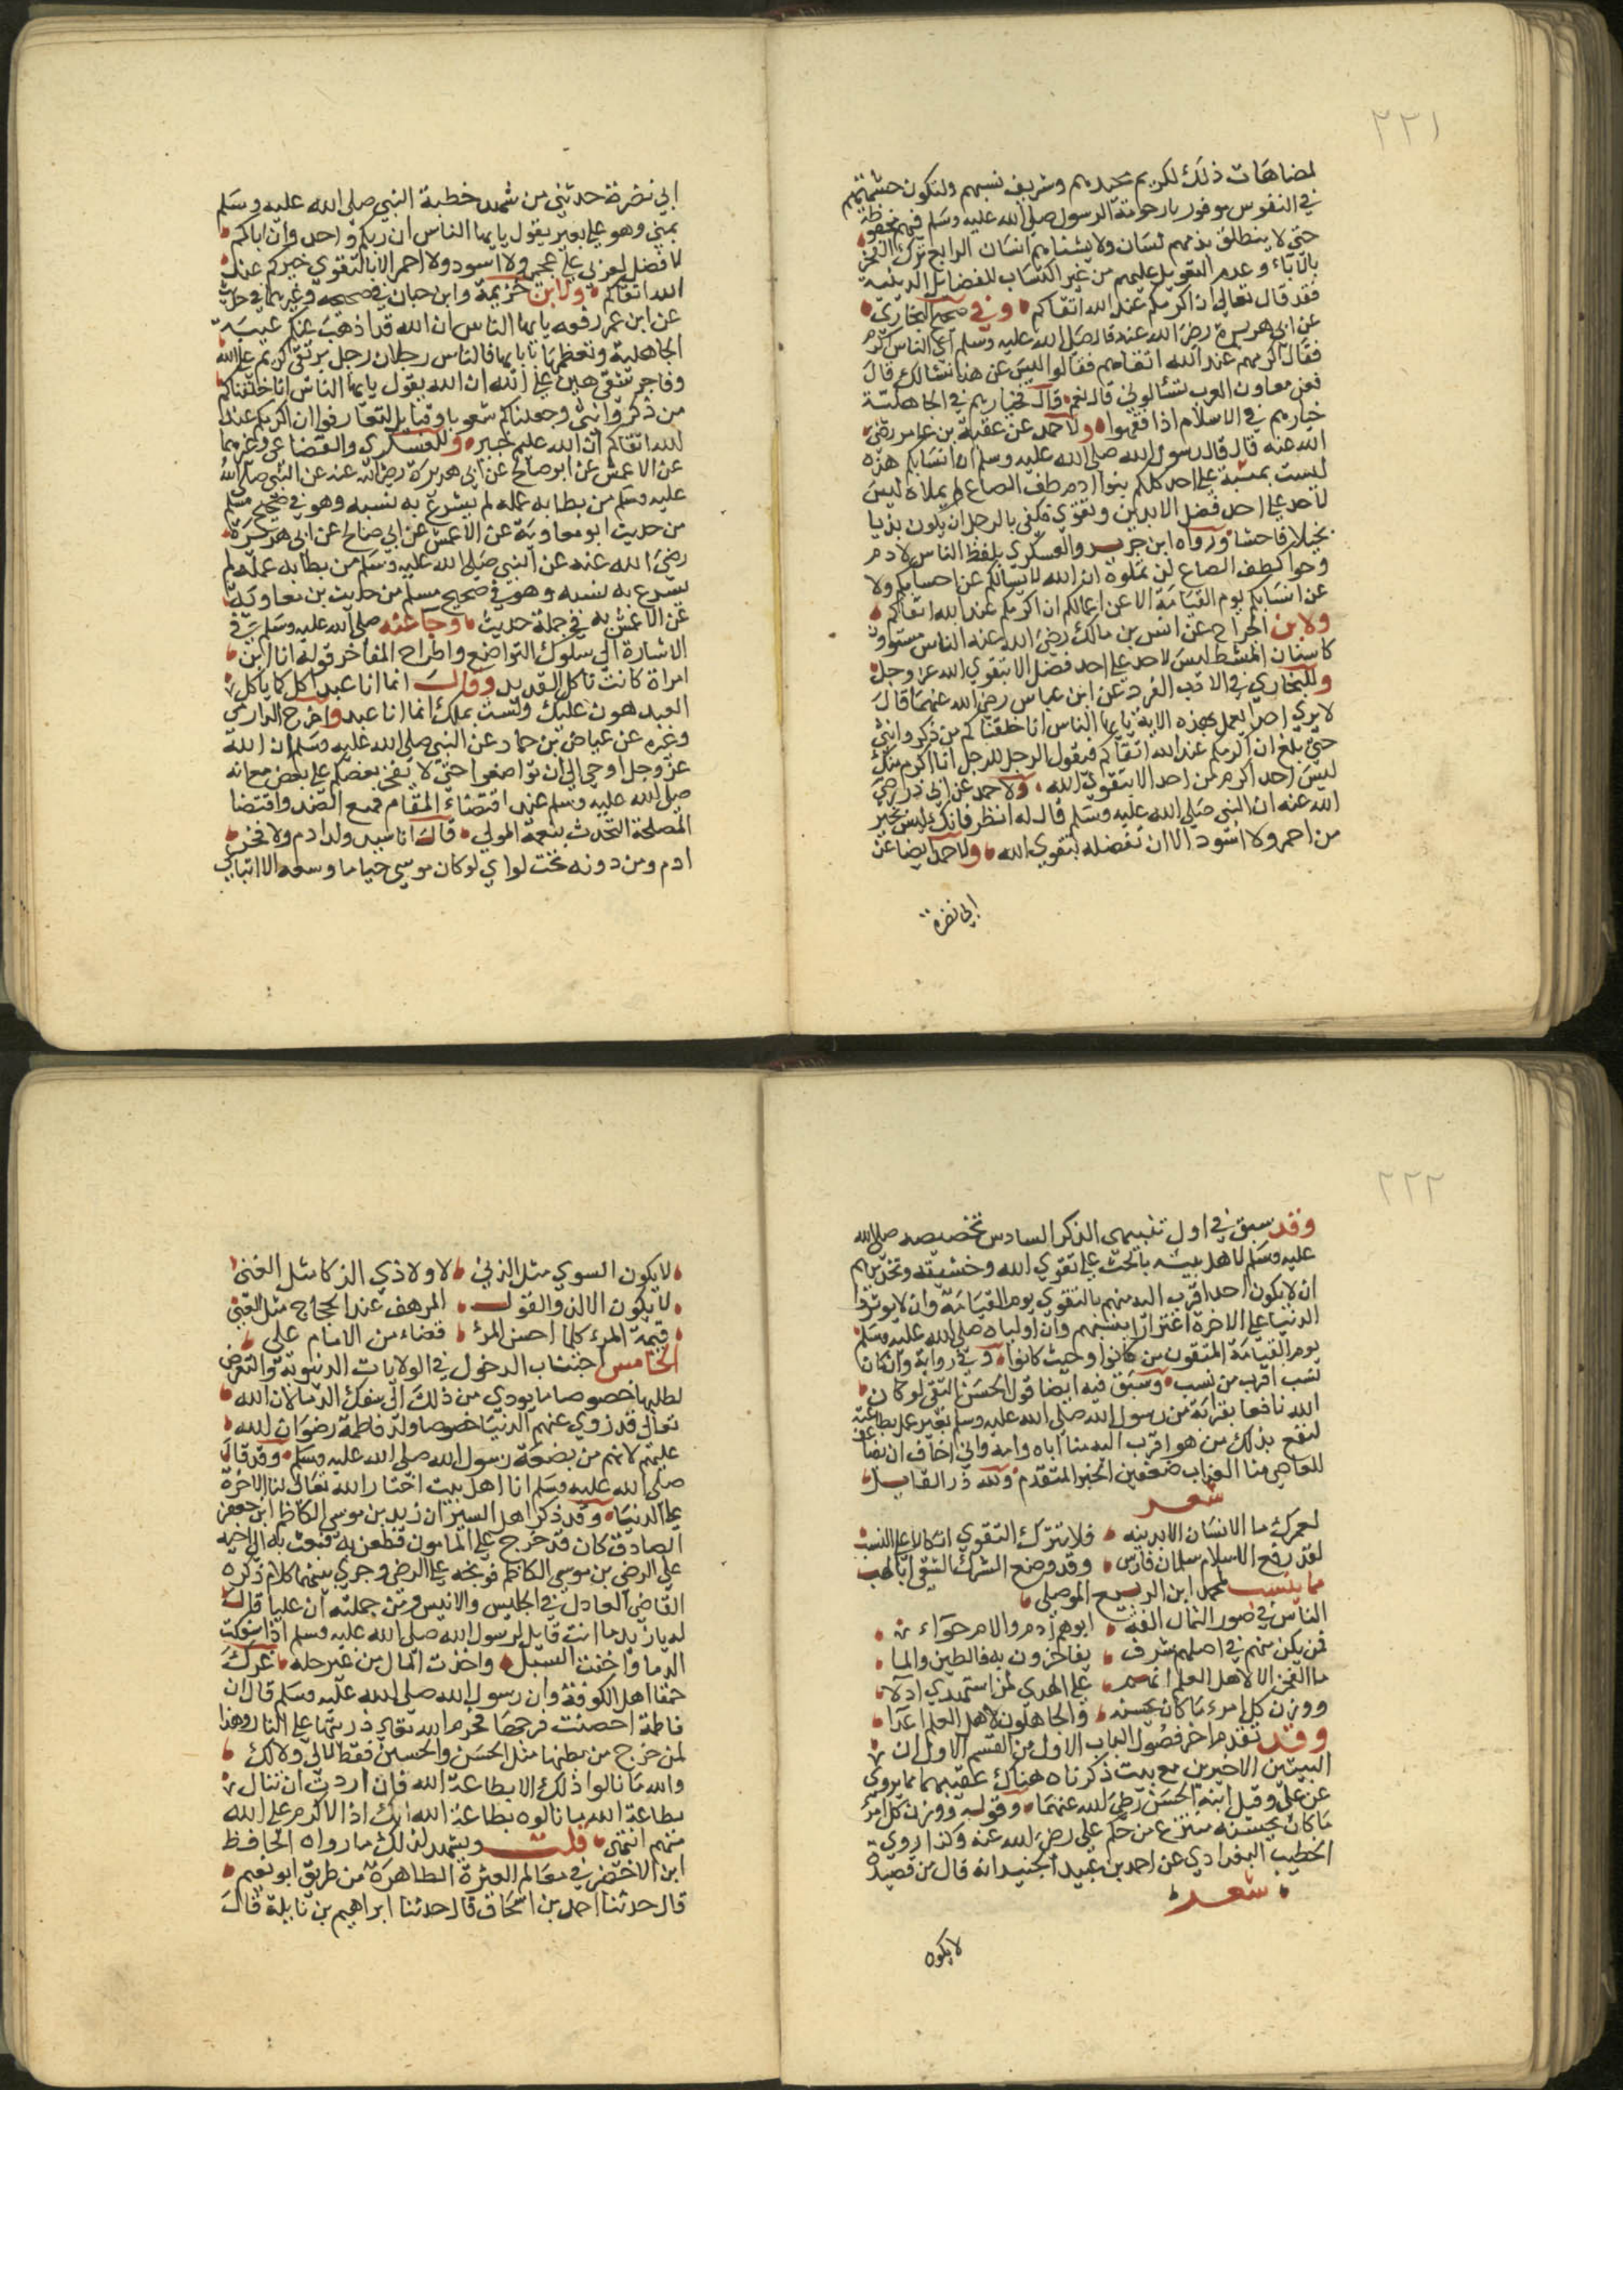 ٢٢١
لمضاهات ذلك لكريم محتدهم وشريف نسبهم ولتكون حشمتهم
في النفوس موفورة وحرمة الرسول صلى الله عليه وسلم فيهم محفوظة
حتى لا ينطلق بذمهم لسان ولا يشناهم انسان الرابع ترك الفخر
بالآباء وعدم التعويل عليهم من غير اكتساب للفضايل الدينية
فقد قال تعالى ان اكرمكم عند الله اتقاكم وفي صحيح البخاري
عن ابي هريرة رضي الله عنه قال صلى الله عليه وسلم اي الناس اكرم
فقال اكرمهم عند الله اتقاهم فقالوا ليس عن هذا نسالك قال
فعن معاون العرب تسألوني قالوا نعم قال فخياركم في الجاهلية
خياركم في الاسلام اذا فقهوا ولاحمد عن عقبة بن عامر رضي
الله عنه قال قال رسول الله صلى الله عليه وسلم ان انسابكم هذه
ليست بمسبة على احد كلكم بنوا ادم طف الصاع لم يملأه ليس
لأحد على احد فضل الا بدين وتقوى وكفى بالرجل ان يكون بذيا
بخيلا فاحشا ورواه ابن جرير والعسكري بلفظ الناس لادم
وحوا كطف الصاع لن تملوه ان الله لا يسالكم عن احسابكم ولا
عن انسابكم يوم القيامة الا عن اعمالكم ان اكرمكم عند الله اتقاكم
ولابن الجراح عن انس بن مالك رضي الله عنه الناس مستوون
كاسنان المشط ليس لاحد على احد فضل الا بتقوى الله عز وجل
وللبخاري في الادب المفرد عن ابن عباس رضي الله عنهما قال
لا يرى احدا يعمل بهذه الاية يا يها الناس انا خلقناكم من ذكر وانثى
حتى بلغ ان اكرمكم عند الله اتقاكم فيقول الرجل للرجل انا اكرم منك
ليس احد اكرم من احد الا بتقوى الله ولاحمد عن ابي ذر رضي
الله عنه ان النبي صلى الله عليه وسلم قال له انظر فانك ليس بخير
من احمر ولا اسود الا ان تفضله بتقوى الله ولاحمد ايضا عن
ابي نضره
ابي نضرة حدثني من شهد خطبة النبي صلى الله عليه وسلم
بمنى وهو على بعير يقول يا يها الناس ان ربكم واحد وان اباكم
لا فضل لعربي على عجمي ولا اسود ولا احمر الا بالتقوى خيركم عند
الله اتقاكم ولابن خزيمة وابن حبان في صحيحه وغيرهما في حديث
عن ابن عمر رفعه يا يها الناس ان الله قد اذهب عنكم عيبة
الجاهلية وتعظمها بابايها فالناس رجلان رجل بر تقي كريم على الله
وفاجر شقي هين على الله ان الله يقول يا يها الناس انا خلقناكم
من ذكر وانثى وجعلناكم شعوبا وقبايل لتعارفوا ان اكرمكم عند
الله اتقاكم ان الله عليم خبير وللعسكري والقضاعي وغيرهما
عن الاعمش عن ابو صالح عن ابي هريرة رضي الله عنه عن النبي صلى الله
عليه وسلم من بطا به عمله لم يسرع به نسبه وهو في صحيح مسلم
من حديث ابو معاوية عن الاعمش عن ابي صالح عن ابي هريرة
رضي الله عنه عن النبي صلى الله عليه وسلم من بطا به عمله لم
يسرع به نسبه وهو في صحيح مسلم من حديث بن معاوية
عن الاعمش به في جملة حديث وجا عنه صلى الله عليه وسلم في
الاشارة الى سلوك التواضع واطراح المفاخر قوله انا ابن
امراة كانت تاكل القديد وقال انما انا عبد آكل كما ياكل
العبد هون عليك ولست بملك انما انا عبد واخرج الدارمي
وغيره عن عياض بن حمار عن النبي صلى الله عليه وسلم ان الله
عز وجل اوحى الي ان تواضعوا حتى لا يفخر بعضكم على بعض مع انه
صلى الله عليه وسلم عند اقتضاء المقام قمع الضد واقتضا
المصلحة التحدث بنعمة المولى قال انا سيد ولد ادم ولا فخر
ادم ومن دونه تحت لواي لو كان موسى حيا ما وسعه الا اتباعي
٢٢٢
وقد سبق في اول تنبيهي الذكر السادس تخصيصه صلى الله
عليه وسلم لاهل بيته بالحث على تقوى الله وخشيته وتحذيرهم
ان لا يكون احد اقرب اليه منهم بالتقوى يوم القيامة وان لا يوثروا
الدنيا على الاخرة اغترارا بنسبهم وان اولياه صلى الله عليه وسلم
يوم القيامة المتقون من كانوا وحيث كانوا وفي رواية وان كان
نسب اقرب من نسب وسبق فيه ايضا قول الحسن التقي لو كان
الله نافعا بقرابة من رسول الله صلى الله عليه وسلم بغير عمل بطاعته
لنفع بذلك من هو اقرب اليه منا اباه وامه واني اخاف ان يضاعف
للعاصي منا العذاب ضعفين الخبر المتقدم ولله در القايل
شعر
لعمرك ما الانسان الا بدينه فلا تترك التقوى اتكالا على النسب
لقد رفع الاسلام سلمان فارس وقد وضع الشرك الشقي ابا لهب
مما ينسب لمحمد ابن الربيع الموصلي
الناس في صور التمثال الفة ابوهم ادم والام حواء
فمن يكن منهم في اصلهم شرف يفاخرون به فالطين والما
ما الفخر الا لاهل العلم انهم على الهدى لمن استهدى ادلا
ووزن كل امرء ما كان يحسنه والجاهلون لاهل العلم اعدا
وقد تقدم اخر فصول الباب الاول من القسم الاول ان
البيتين الاخيرين مع بيت ذكرناه هناك عقبهما مما يروى
عن علي وقيل ابنه الحسن رضي الله عنهما وقوله ووزن كل امرء
ما كان يحسنه منتزع من حكم علي رضي الله عنه وكذا روي
الخطيب البغدادي عن احمد بن عبيد الجنيد انه قال من قصيدة
شعر
لا يكون
لا يكون السوي مثل الدني لا ولا ذي الذكا مثل الغبي
لا يكون الالد والقول المرهف عند الحجاج مثل العيي
قيمة المرء كلما احسن المرء قضاء من الامام علي
الخامس اجتناب الدخول في الولايات الدنيوية والتعرض
لطلبها خصوصا ما يودي من ذلك الى سفك الدما لان الله
تعالى قد زوى عنهم الدنيا خصوصا ولد فاطمة رضوان الله
عليهم لانهم من بضعة رسول الله صلى الله عليه وسلم وقد قال
صلى الله عليه وسلم انا اهل بيت اختار الله تعالى لنا الاخرة
على الدنيا وقد ذكر اهل السير ان زيد بن موسى الكاظم ابن جعفر
الصادق كان قد خرج على المامون فظفر به فبعث به الى اخيه
علي الرضي بن موسى الكاظم فوبخه علي الرضي وجرى بينهما كلام ذكره
القاضي العادل في الجليس والانيس ومن جملته ان عليا قال
له يا زيد ما انت قايل لرسول الله صلى الله عليه وسلم اذا سفكت
الدما واخفت السبل واخذت المال من غير حله غرك
حمقا اهل الكوفة وان رسول الله صلى الله عليه وسلم قال ان
فاطمة احصنت فرجها فحرم الله تعالى ذريتها على النار وهذا
لمن خرج من بطنها مثل الحسن والحسين فقط لا لي ولا لك
والله ما نالوا ذلك الا بطاعة الله فان اردت ان تنال
بطاعة الله ما نالوه بطاعة الله انك اذا لاكرم على الله
منهم انتهى قلت ويشهد لذلك ما رواه الحافظ
ابن الاخضر في معالم العترة الطاهرة من طريق ابو نعيم
قال حدثنا احمد بن اسحاق قال حدثنا ابراهيم بن نايلة قال